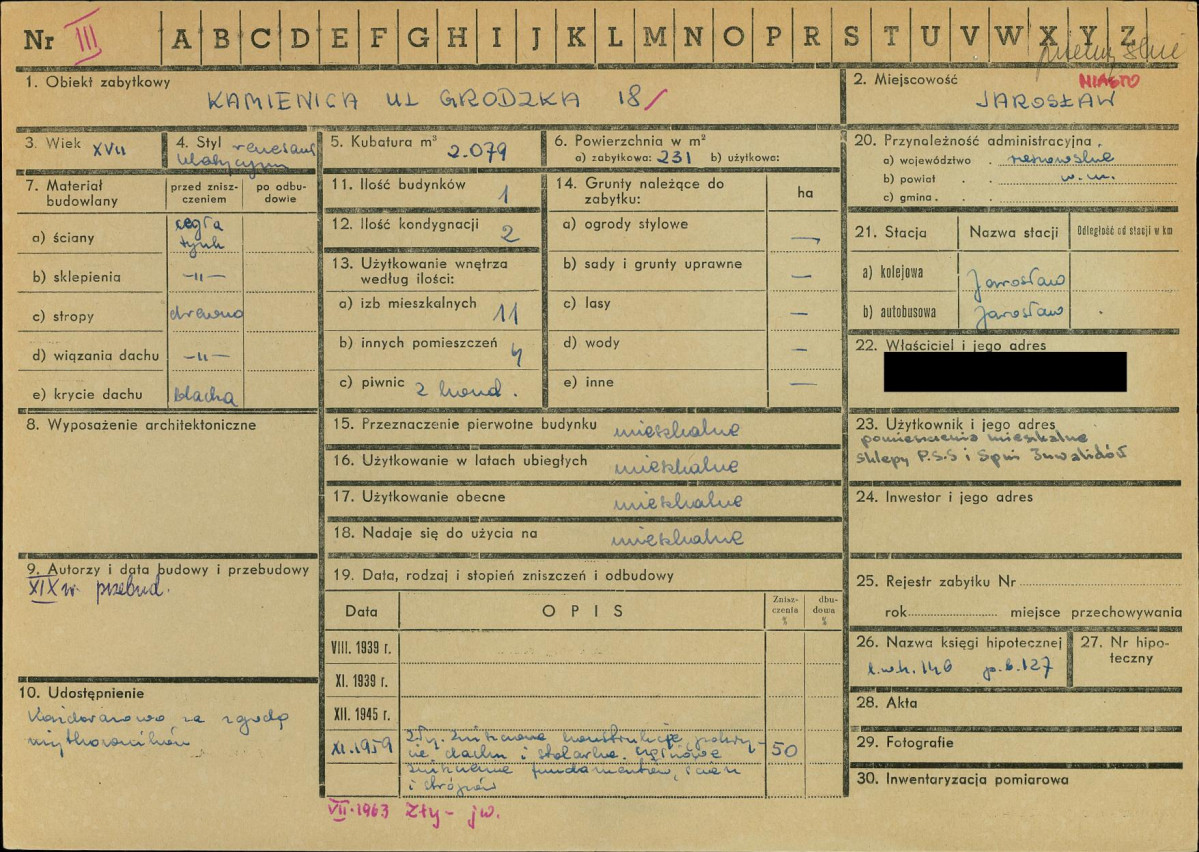 Nr III A B C D E F G H I J K L M N O P R S T U V W X Y Z
1. Obiekt zabytkowy
KAMIENICA UL GRODZKA 18/
2. Miejscowość
MIASTO
JAROSŁAW
3. Wiek XVII
4. Styl renesans
klasycyzm
5. Kubatura m³ 2.079
6. Powierzchnia w m²
a) zabytkowa: 231 b) użytkowa:
7. Materiał budowlany
przed zniszczeniem
po odbudowie
a) ściany cegła
tynk
b) sklepienia -"-
c) stropy drewno
d) wiązania dachu -"-
e) krycie dachu blacha
8. Wyposażenie architektoniczne
9. Autorzy i data budowy i przebudowy
XIX w. przebud.
10. Udostępnienie
za zgodą
11. Ilość budynków 1
12. Ilość kondygnacji 2
13. Użytkowanie wnętrza
według ilości:
a) izb mieszkalnych 11
b) innych pomieszczeń 4
c) piwnic 2 kond.
14. Grunty należące do
zabytku:
ha
a) ogrody stylowe —
b) sady i grunty uprawne —
c) lasy —
d) wody —
e) inne —
15. Przeznaczenie pierwotne budynku mieszkalne
16. Użytkowanie w latach ubiegłych mieszkalne
17. Użytkowanie obecne mieszkalne
18. Nadaje się do użycia na mieszkalne
19. Data, rodzaj i stopień zniszczeń i odbudowy
Data OPIS Zniszczenia % dbudowa %
VIII. 1939 r.
XI. 1939 r.
XII. 1945 r.
XI.1959 Zły. zniszczona konstrukcja, pokrycie dachu i stolarka. częściowe 50
zniszczenie fundamentów, ścian
i stropów
VII.1963 Zły - jw.
20. Przynależność administracyjna
a) województwo rzeszowskie
b) powiat w.m.
c) gmina
21. Stacja Nazwa stacji Odległość od stacji w km
a) kolejowa Jarosław
b) autobusowa Jarosław
22. Właściciel i jego adres
23. Użytkownik i jego adres
pomieszczenia mieszkalne
sklepy P.S.S i Spni Inwalidów
24. Inwestor i jego adres
25. Rejestr zabytku Nr
rok miejsce przechowywania
26. Nazwa księgi hipotecznej
l.w.h. 146 p.b.127
27. Nr hipoteczny
28. Akta
29. Fotografie
30. Inwentaryzacja pomiarowa